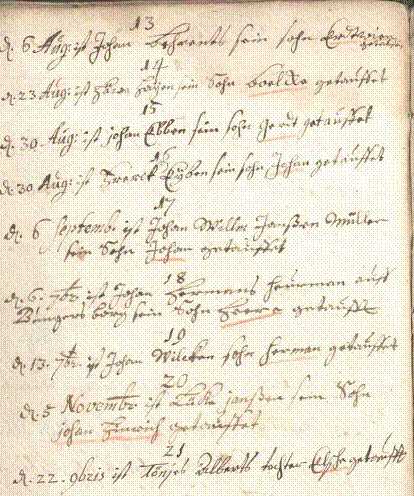 13
d. 6 Aug: ist Johan Behrents sein sohn getauffet
14
d. 23 Aug: ist sein Sohn getauffet
15
d. 30. Aug: ist johan Ebben sein sohn Gerdt getauffet
16
d. 30 Aug: ist Frerick Eyben sein sohn Johan getauffet
17
d. 6 Septemb: ist Johan Willm Janßen Müller
sein Sohn Johan getauffet
18
d. 6. 7br: ist Johan Hermans heurman auff
sein Sohn getaufft
19
d. 13. 7br. ist Johan Wilcken sohn herman getauffet
20
d. 5 Novembr: ist janßen sein Sohn
johan Hinrich getauffet
21
d. 22. 9bris ist Tönjes Alberts tochter getaufft